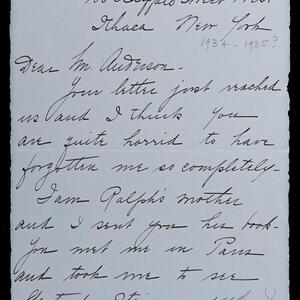 Street West
Ithaca New York
1934-1935?
Dear Mr. Anderson-
Your letter just reached
us and I think you
are quite horrid to have
forgotten me so completely-
I am Ralph's mother
and I sent you his book-
You met me in Paris
and took me to see